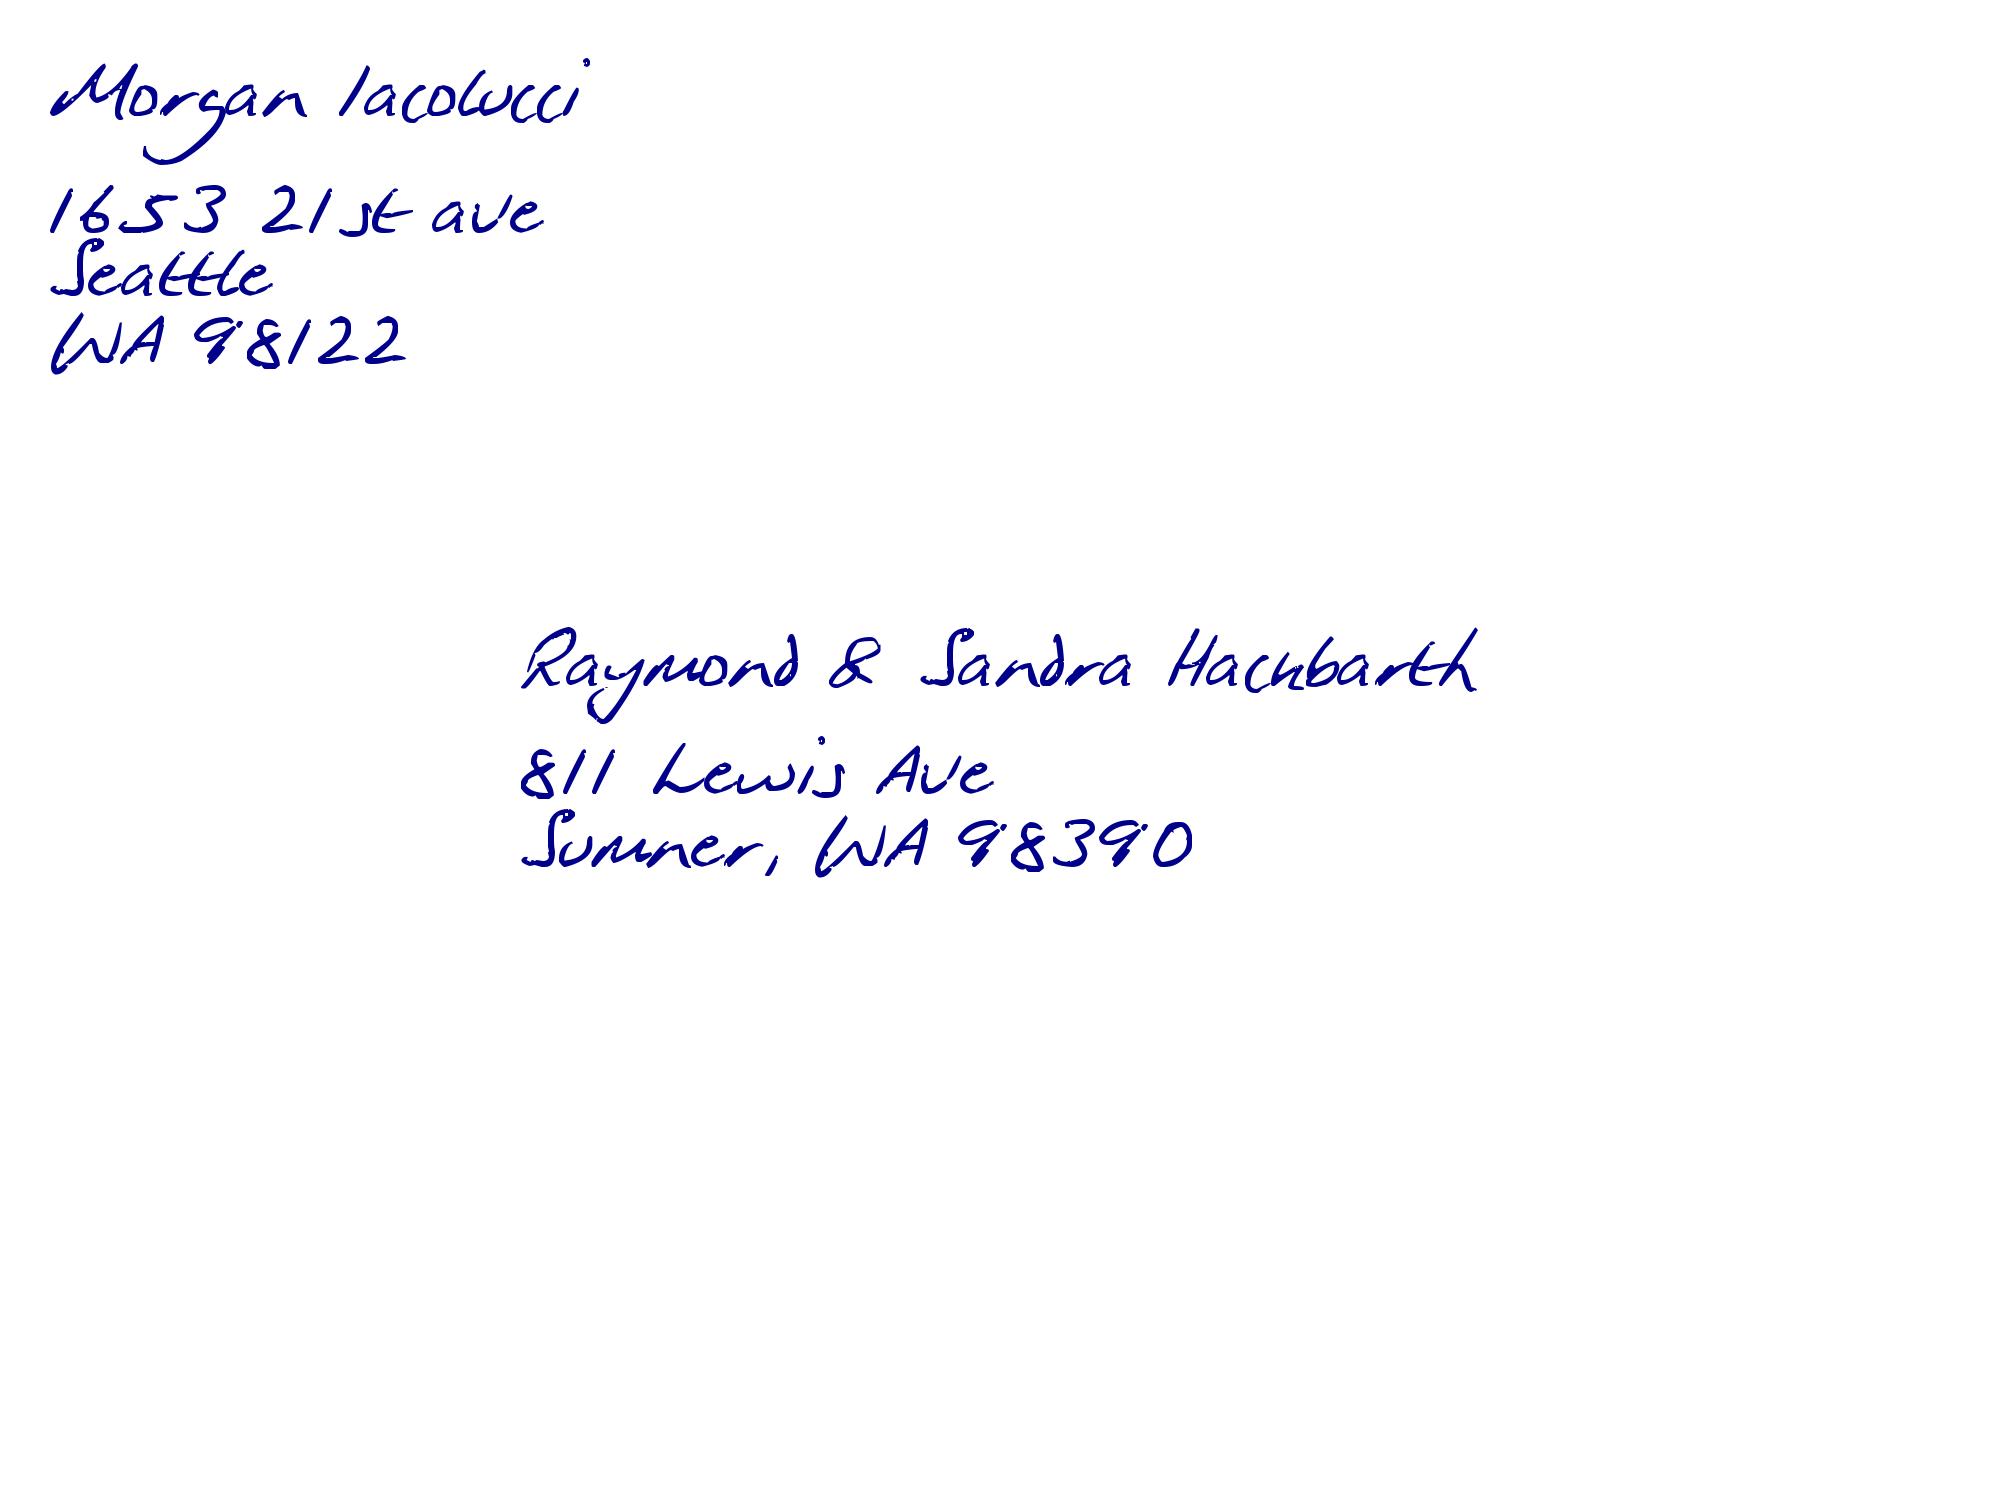 Morgan Iacolucci
1653 21st ave
Seattle
WA 98122
Raymond & Sandra Hachbarth
811 Lewis Ave
Sumner, WA 98390